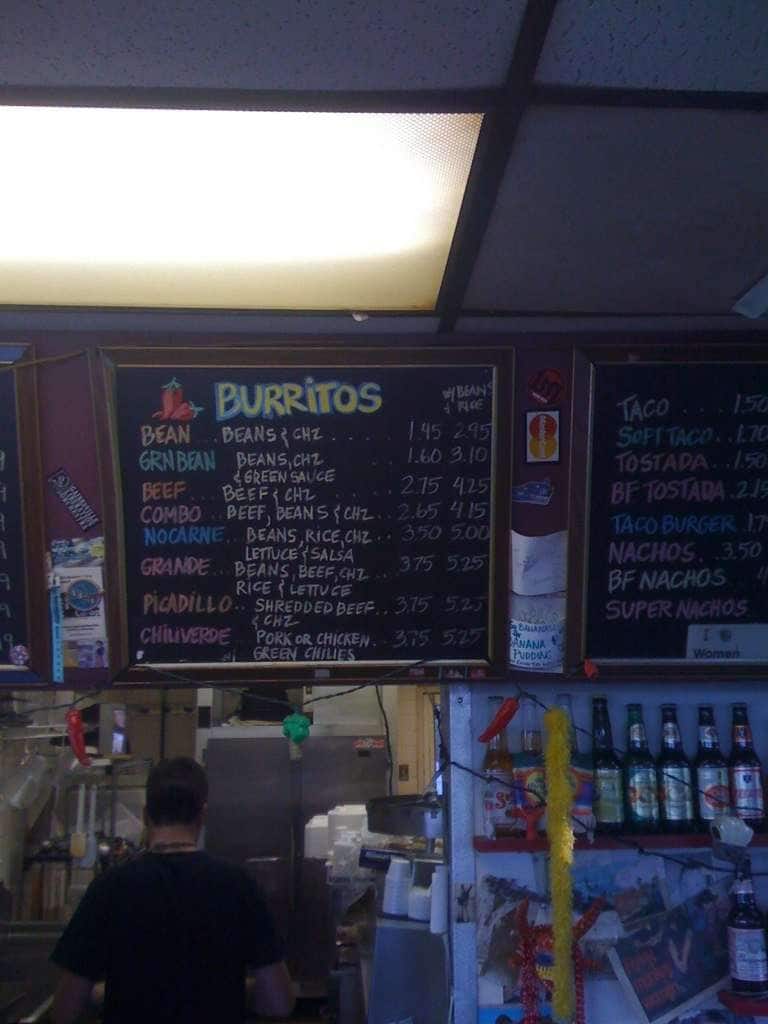 BURRITOS
W/ BEANS
& RICE
BEAN... BEANS & CHZ ...... 1.45 2.95
GRN BEAN BEANS, CHZ .. 1.60 3.10
& GREEN SAUCE
BEEF... BEEF & CHZ ..... 2.75 4.25
COMBO.. BEEF, BEANS & CHZ... 2.65 4.15
NOCARNE.. BEANS, RICE, CHZ.. 3.50 5.00
LETTUCE & SALSA
GRANDE.. BEANS, BEEF, CHZ.. 3.75 5.25
RICE & LETTUCE
PICADILLO.. SHREDDED BEEF.. 3.75 5.25
& CHZ
CHILIVERDE PORK OR CHICKEN.. 3.75 5.25
GREEN CHILIES
TACO .... 1.50
SOFT TACO.. 1.70
TOSTADA... 1.50
BF TOSTADA..
TACO BURGER.
NACHOS... 3.50
BF NACHOS..
SUPER NACHOS
I
Women
BANANA
PUDDING